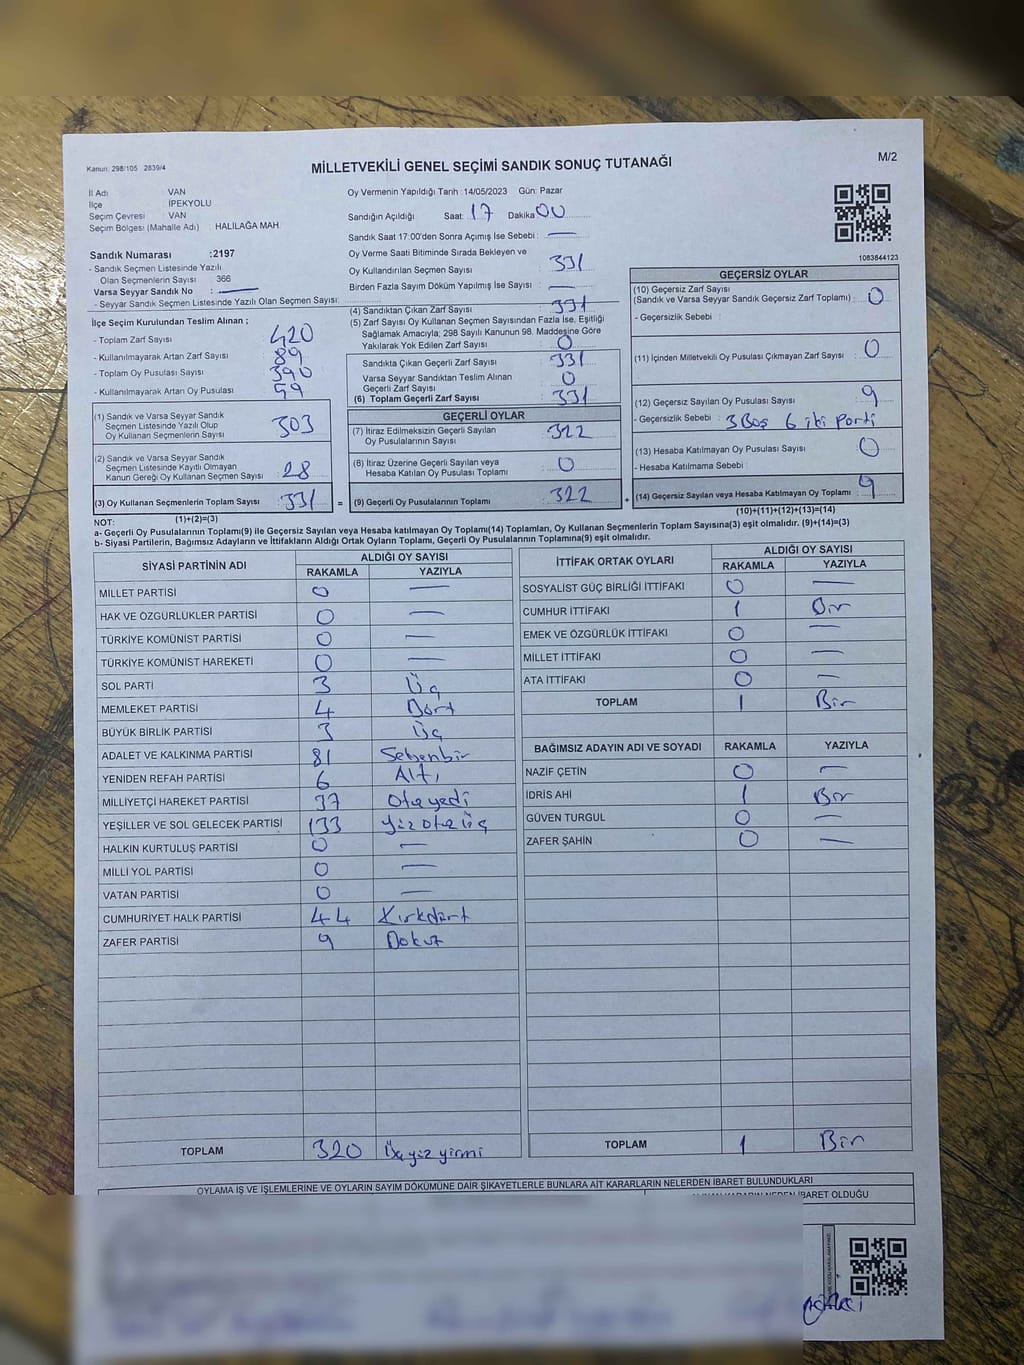 Kanun: 298/105 2839/4
MİLLETVEKİLİ GENEL SEÇİMİ SANDIK SONUÇ TUTANAĞI
M/2
İl Adı VAN
İlçe İPEKYOLU
Seçim Çevresi VAN
Seçim Bölgesi (Mahalle Adı) HALİLAĞA MAH.
Oy Vermenin Yapıldığı Tarih :14/05/2023 Gün: Pazar
Sandığın Açıldığı Saat: 17 Dakika 00
Sandık Saat 17:00'den Sonra Açılmış İse Sebebi : —
Oy Verme Saati Bitiminde Sırada Bekleyen ve
Oy Kullandırılan Seçmen Sayısı 331
Birden Fazla Sayım Döküm Yapılmış İse Sayısı : —
1083844123
Sandık Numarası :2197
- Sandık Seçmen Listesinde Yazılı
Olan Seçmenlerin Sayısı 366
Varsa Seyyar Sandık No : —
- Seyyar Sandık Seçmen Listesinde Yazılı Olan Seçmen Sayısı:
İlçe Seçim Kurulundan Teslim Alınan ;
- Toplam Zarf Sayısı : 420
- Kullanılmayarak Artan Zarf Sayısı : 89
- Toplam Oy Pusulası Sayısı : 390
- Kullanılmayarak Artan Oy Pusulası : 59
(1) Sandık ve Varsa Seyyar Sandık
Seçmen Listesinde Yazılı Olup
Oy Kullanan Seçmenlerin Sayısı 303
(2) Sandık ve Varsa Seyyar Sandık
Seçmen Listesinde Kayıtlı Olmayan
Kanun Gereği Oy Kullanan Seçmen Sayısı 28
(3) Oy Kullanan Seçmenlerin Toplam Sayısı 331 =
(1)+(2)=(3)
(4) Sandıktan Çıkan Zarf Sayısı 331
(5) Zarf Sayısı Oy Kullanan Seçmen Sayısından Fazla İse, Eşitliği
Sağlamak Amacıyla; 298 Sayılı Kanunun 98. Maddesine Göre
Yakılarak Yok Edilen Zarf Sayısı : 0
Sandıkta Çıkan Geçerli Zarf Sayısı 331
Varsa Seyyar Sandıktan Teslim Alınan
Geçerli Zarf Sayısı 0
(6) Toplam Geçerli Zarf Sayısı 331
GEÇERLİ OYLAR
(7) İtiraz Edilmeksizin Geçerli Sayılan
Oy Pusulalarının Sayısı 322
(8) İtiraz Üzerine Geçerli Sayılan veya
Hesaba Katılan Oy Pusulası Toplamı 0
(9) Geçerli Oy Pusulalarının Toplamı 322 +
GEÇERSİZ OYLAR
(10) Geçersiz Zarf Sayısı
(Sandık ve Varsa Seyyar Sandık Geçersiz Zarf Toplamı) : 0
- Geçersizlik Sebebi :
(11) İçinden Milletvekili Oy Pusulası Çıkmayan Zarf Sayısı : 0
(12) Geçersiz Sayılan Oy Pusulası Sayısı : 9
- Geçersizlik Sebebi : 3 Boş 6 iki parti
(13) Hesaba Katılmayan Oy Pusulası Sayısı : 0
- Hesaba Katılmama Sebebi :
(14) Geçersiz Sayılan veya Hesaba Katılmayan Oy Toplamı : 9
(10)+(11)+(12)+(13)=(14)
NOT:
a- Geçerli Oy Pusulalarının Toplamı(9) ile Geçersiz Sayılan veya Hesaba katılmayan Oy Toplamı(14) Toplamları, Oy Kullanan Seçmenlerin Toplam Sayısına(3) eşit olmalıdır. (9)+(14)=(3)
b- Siyasi Partilerin, Bağımsız Adayların ve İttifakların Aldığı Ortak Oyların Toplamı, Geçerli Oy Pusulalarının Toplamına(9) eşit olmalıdır.
SİYASİ PARTİNİN ADI ALDIĞI OY SAYISI
RAKAMLA YAZIYLA
MİLLET PARTİSİ 0 —
HAK VE ÖZGÜRLÜKLER PARTİSİ 0 —
TÜRKİYE KOMÜNİST PARTİSİ 0 —
TÜRKİYE KOMÜNİST HAREKETİ 0 —
SOL PARTİ 3 Üç
MEMLEKET PARTİSİ 4 Dört
BÜYÜK BİRLİK PARTİSİ 3 Üç
ADALET VE KALKINMA PARTİSİ 81 Seksenbir
YENİDEN REFAH PARTİSİ 6 Altı
MİLLİYETÇİ HAREKET PARTİSİ 37 Otuzyedi
YEŞİLLER VE SOL GELECEK PARTİSİ 133 Yüz otuz üç
HALKIN KURTULUŞ PARTİSİ 0 —
MİLLİ YOL PARTİSİ 0 —
VATAN PARTİSİ 0 —
CUMHURİYET HALK PARTİSİ 44 Kırkdört
ZAFER PARTİSİ 9 Dokuz
TOPLAM 320 Üçyüzyirmi
İTTİFAK ORTAK OYLARI ALDIĞI OY SAYISI
RAKAMLA YAZIYLA
SOSYALİST GÜÇ BİRLİĞİ İTTİFAKI 0 —
CUMHUR İTTİFAKI 1 Bir
EMEK VE ÖZGÜRLÜK İTTİFAKI 0 —
MİLLET İTTİFAKI 0 —
ATA İTTİFAKI 0 —
TOPLAM 1 Bir
BAĞIMSIZ ADAYIN ADI VE SOYADI RAKAMLA YAZIYLA
NAZİF ÇETİN 0 —
İDRİS AHİ 1 Bir
GÜVEN TURGUL 0 —
ZAFER ŞAHİN 0 —
TOPLAM 1 Bir
OYLAMA İŞ VE İŞLEMLERİNE VE OYLARIN SAYIM DÖKÜMÜNE DAİR ŞİKAYETLERLE BUNLARA AİT KARARLARIN NELERDEN İBARET BULUNDUKLARI
NEDEN İBARET OLDUĞU